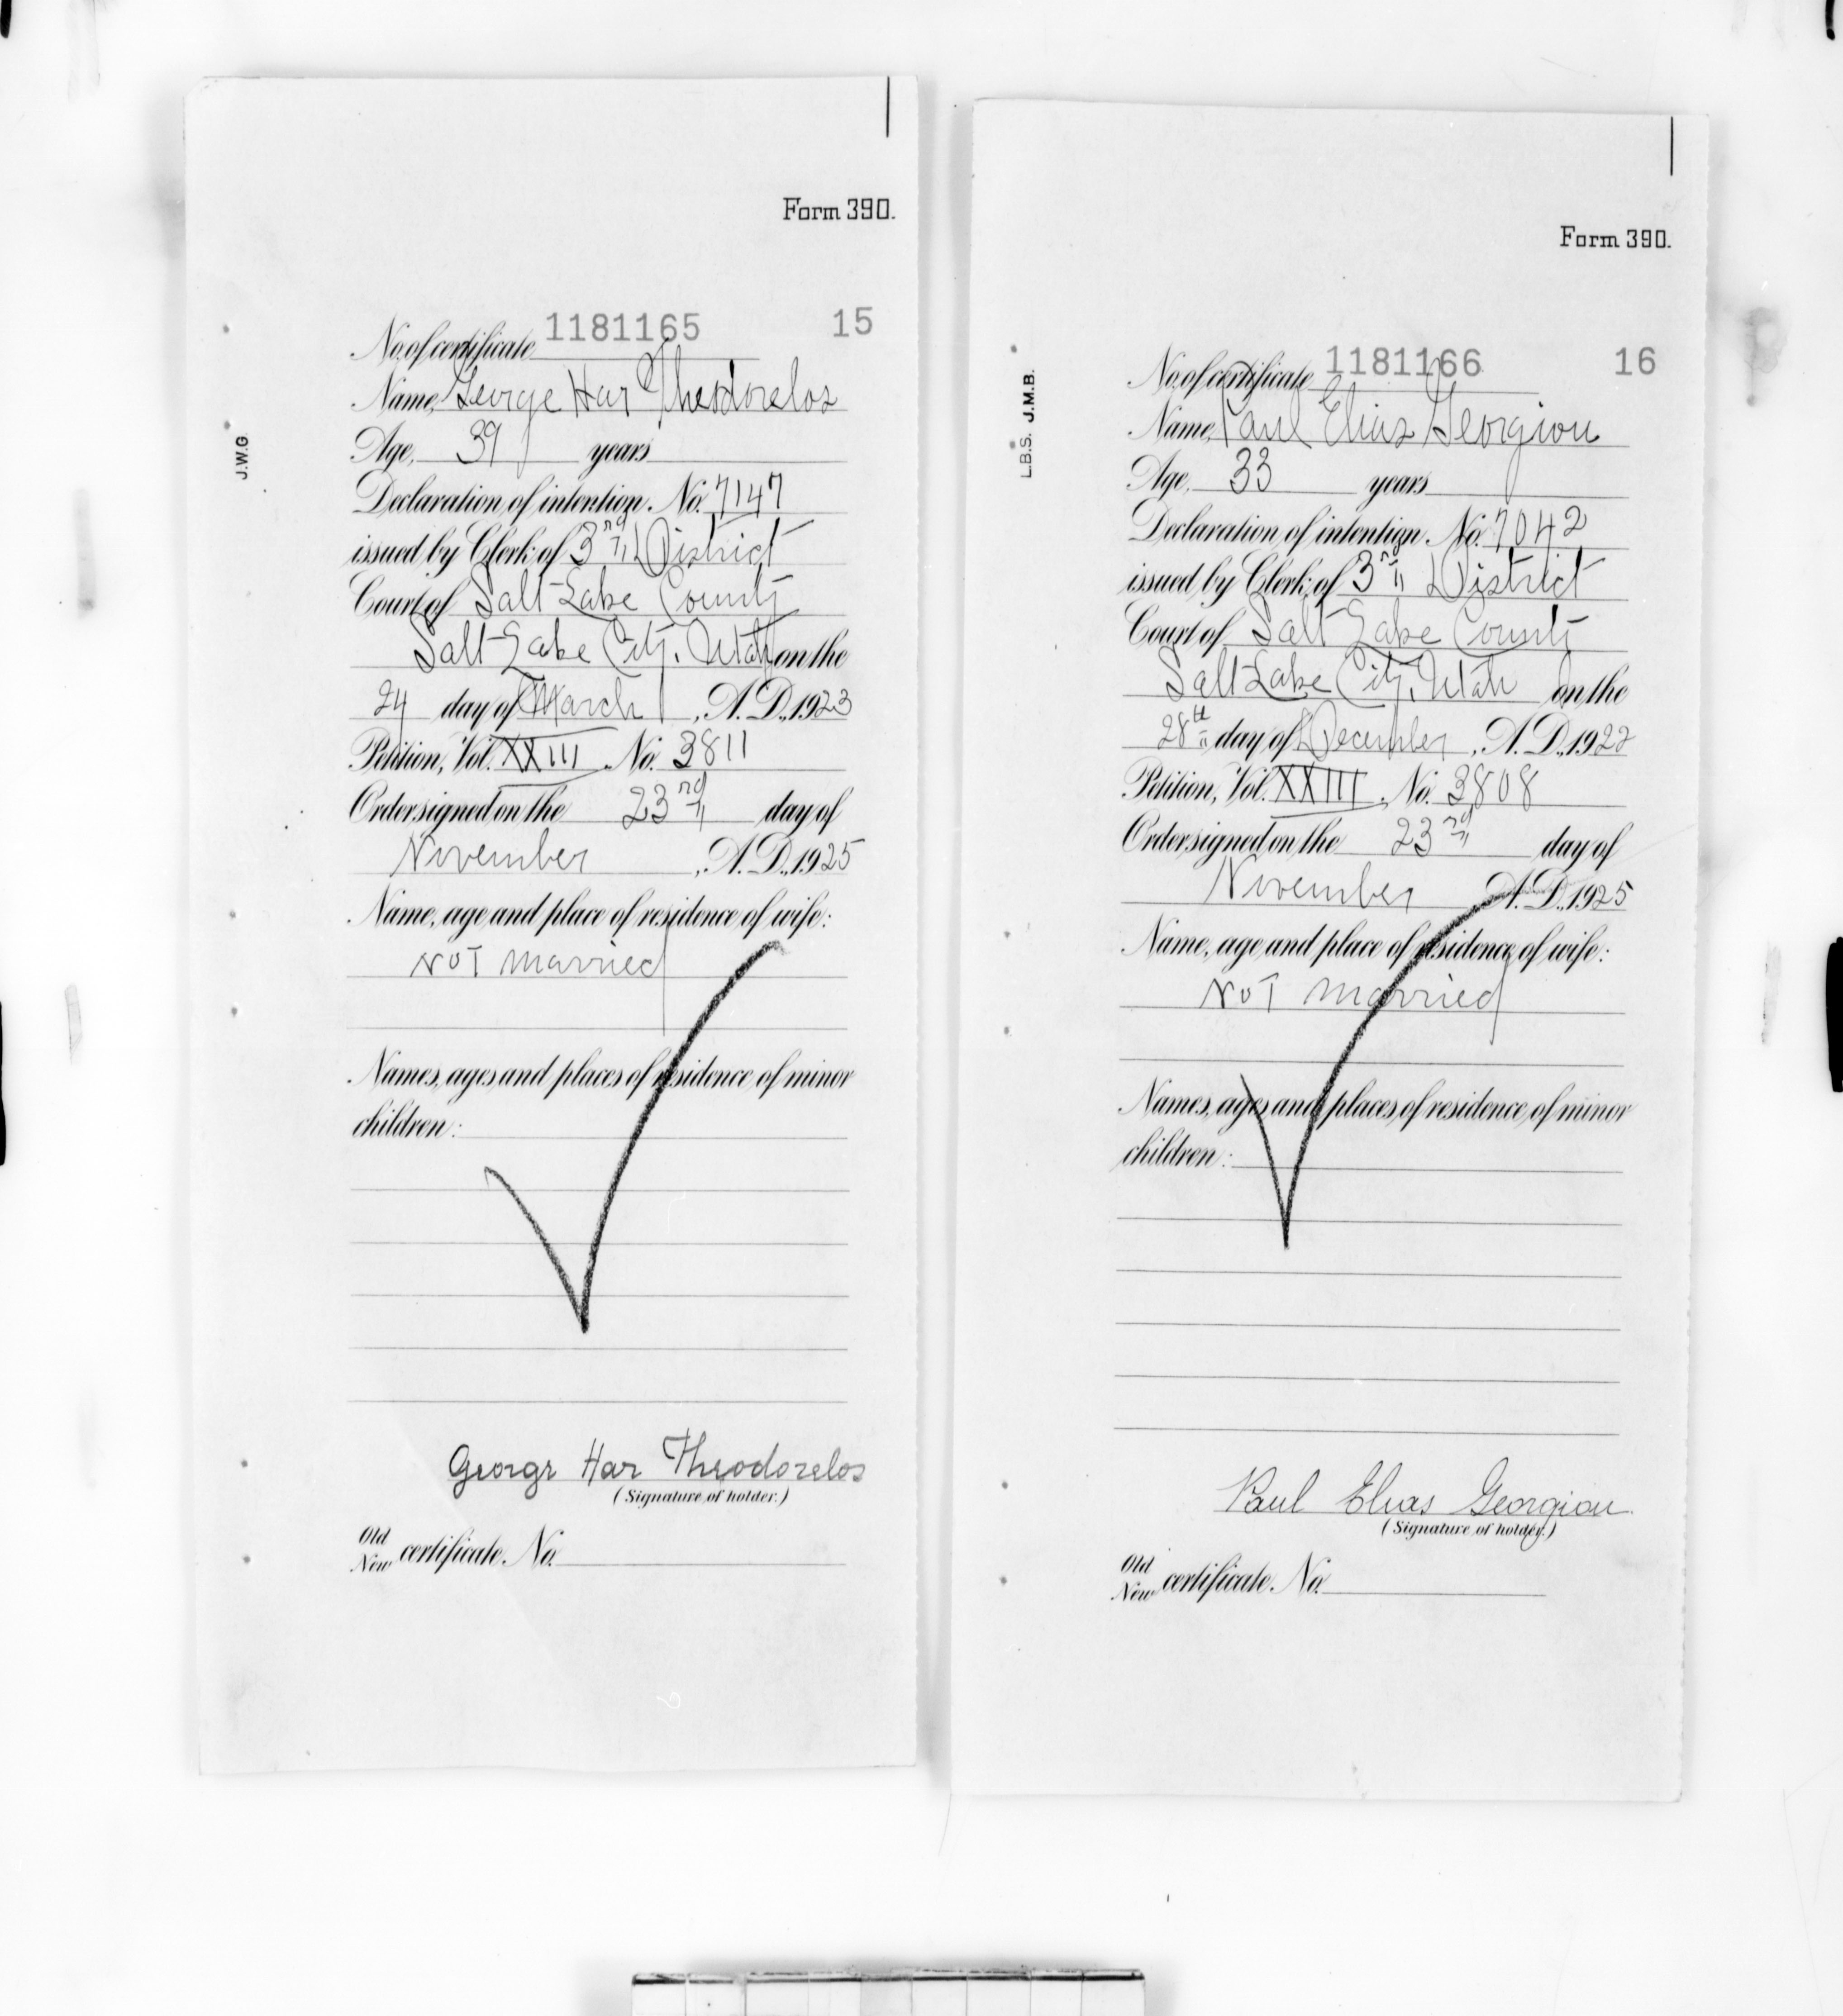 Form 390.
No. of certificate 1181165 15
Name, George Har Theodorelos
Age, 39 years
Declaration of intention, No. 7147
issued by Clerk of 3rd District
Court of Salt Lake County
Salt Lake City, Utah on the
24 day of March, A.D., 1923
Petition, Vol. XXIII, No. 3811
Order signed on the 23rd day of
November, A.D., 1925
Name, age and place of residence of wife:
Not married
Names, ages and places of residence of minor
children:
George Har Theodorelos
(Signature of holder.)
Old
New certificate No.
J.W.G.
Form 390.
No. of certificate 1181166 16
Name, Paul Elias Georgiou
Age, 33 years
Declaration of intention, No. 7042
issued by Clerk of 3rd District
Court of Salt Lake County
Salt Lake City, Utah on the
28th day of December, A.D., 1922
Petition, Vol. XXIII, No. 3808
Order signed on the 23rd day of
November, A.D., 1925
Name, age and place of residence of wife:
Not married
Names, ages and places of residence of minor
children:
Paul Elias Georgiou
(Signature of holder.)
Old
New certificate No.
L.B.S. J.M.B.